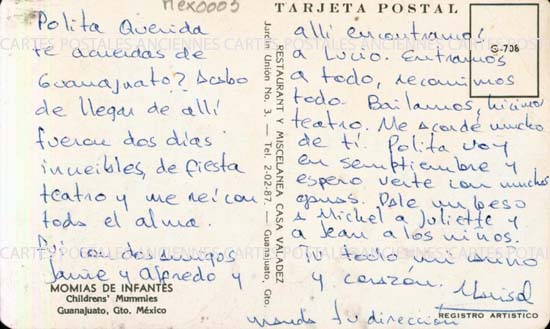 Mex0003
TARJETA POSTAL
G-706
Polita Querida
te acuerdas de
Guanajuato? Acabo
de llegar de allí
fueron dos días
increibles, de fiesta
teatro y me reí con
toda el alma.
Fui con dos amigos
Jaime y Alfredo y
allí encontramos
a Lucio. Entramos
a todo, recorrimos
todo. Bailamos, hicimos
teatro. Me acordé mucho
de ti. Polita voy
en semptiembre y
espero verte con muchas
ganas. Dale un beso
a Michel a Juliette y
a Jean a los niños.
Tu todo mi cariño
y corazón. Marisol
manda tu dirección
RESTAURANT Y MISCELANEA CASA VALADEZ
Jardín Unión No. 3. — Tel. 2-02-87. — Guanajuato, Gto.
MOMIAS DE INFANTES
Childrens' Mummies
Guanajuato, Gto. México
REGISTRO ARTISTICO
CARTES POSTALES ANCIENNES